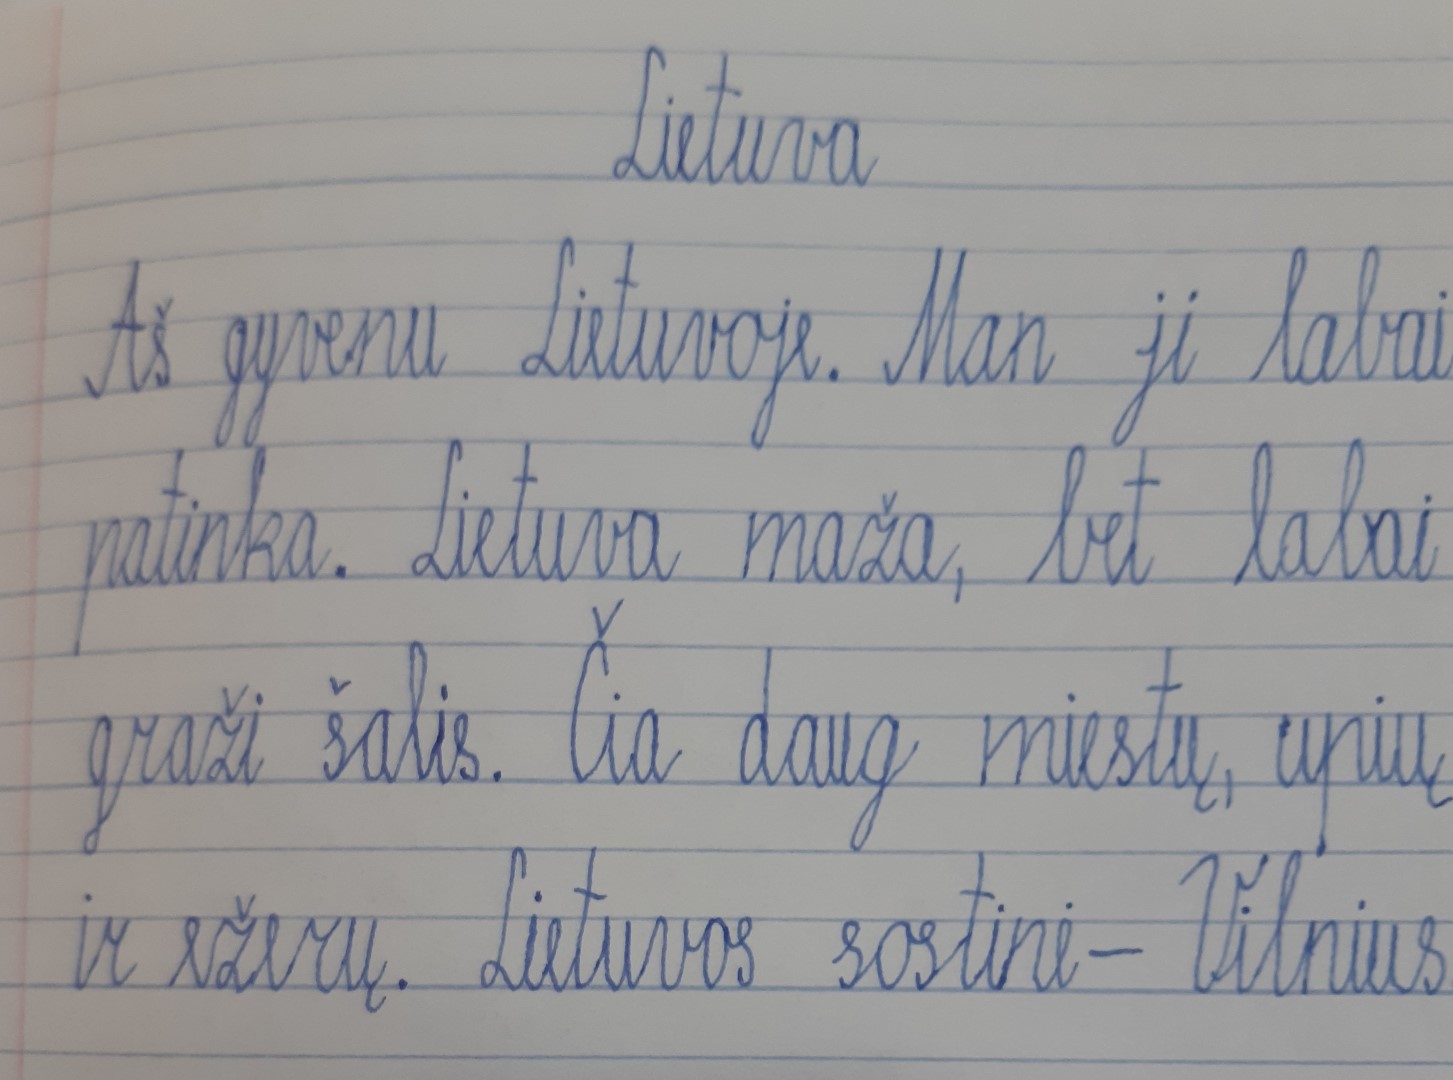 Lietuva
Aš gyvenu Lietuvoje. Man ji labai
patinka. Lietuva maža, bet labai
graži šalis. Čia daug miestų, upių
ir ežerų. Lietuvos sostinė – Vilnius